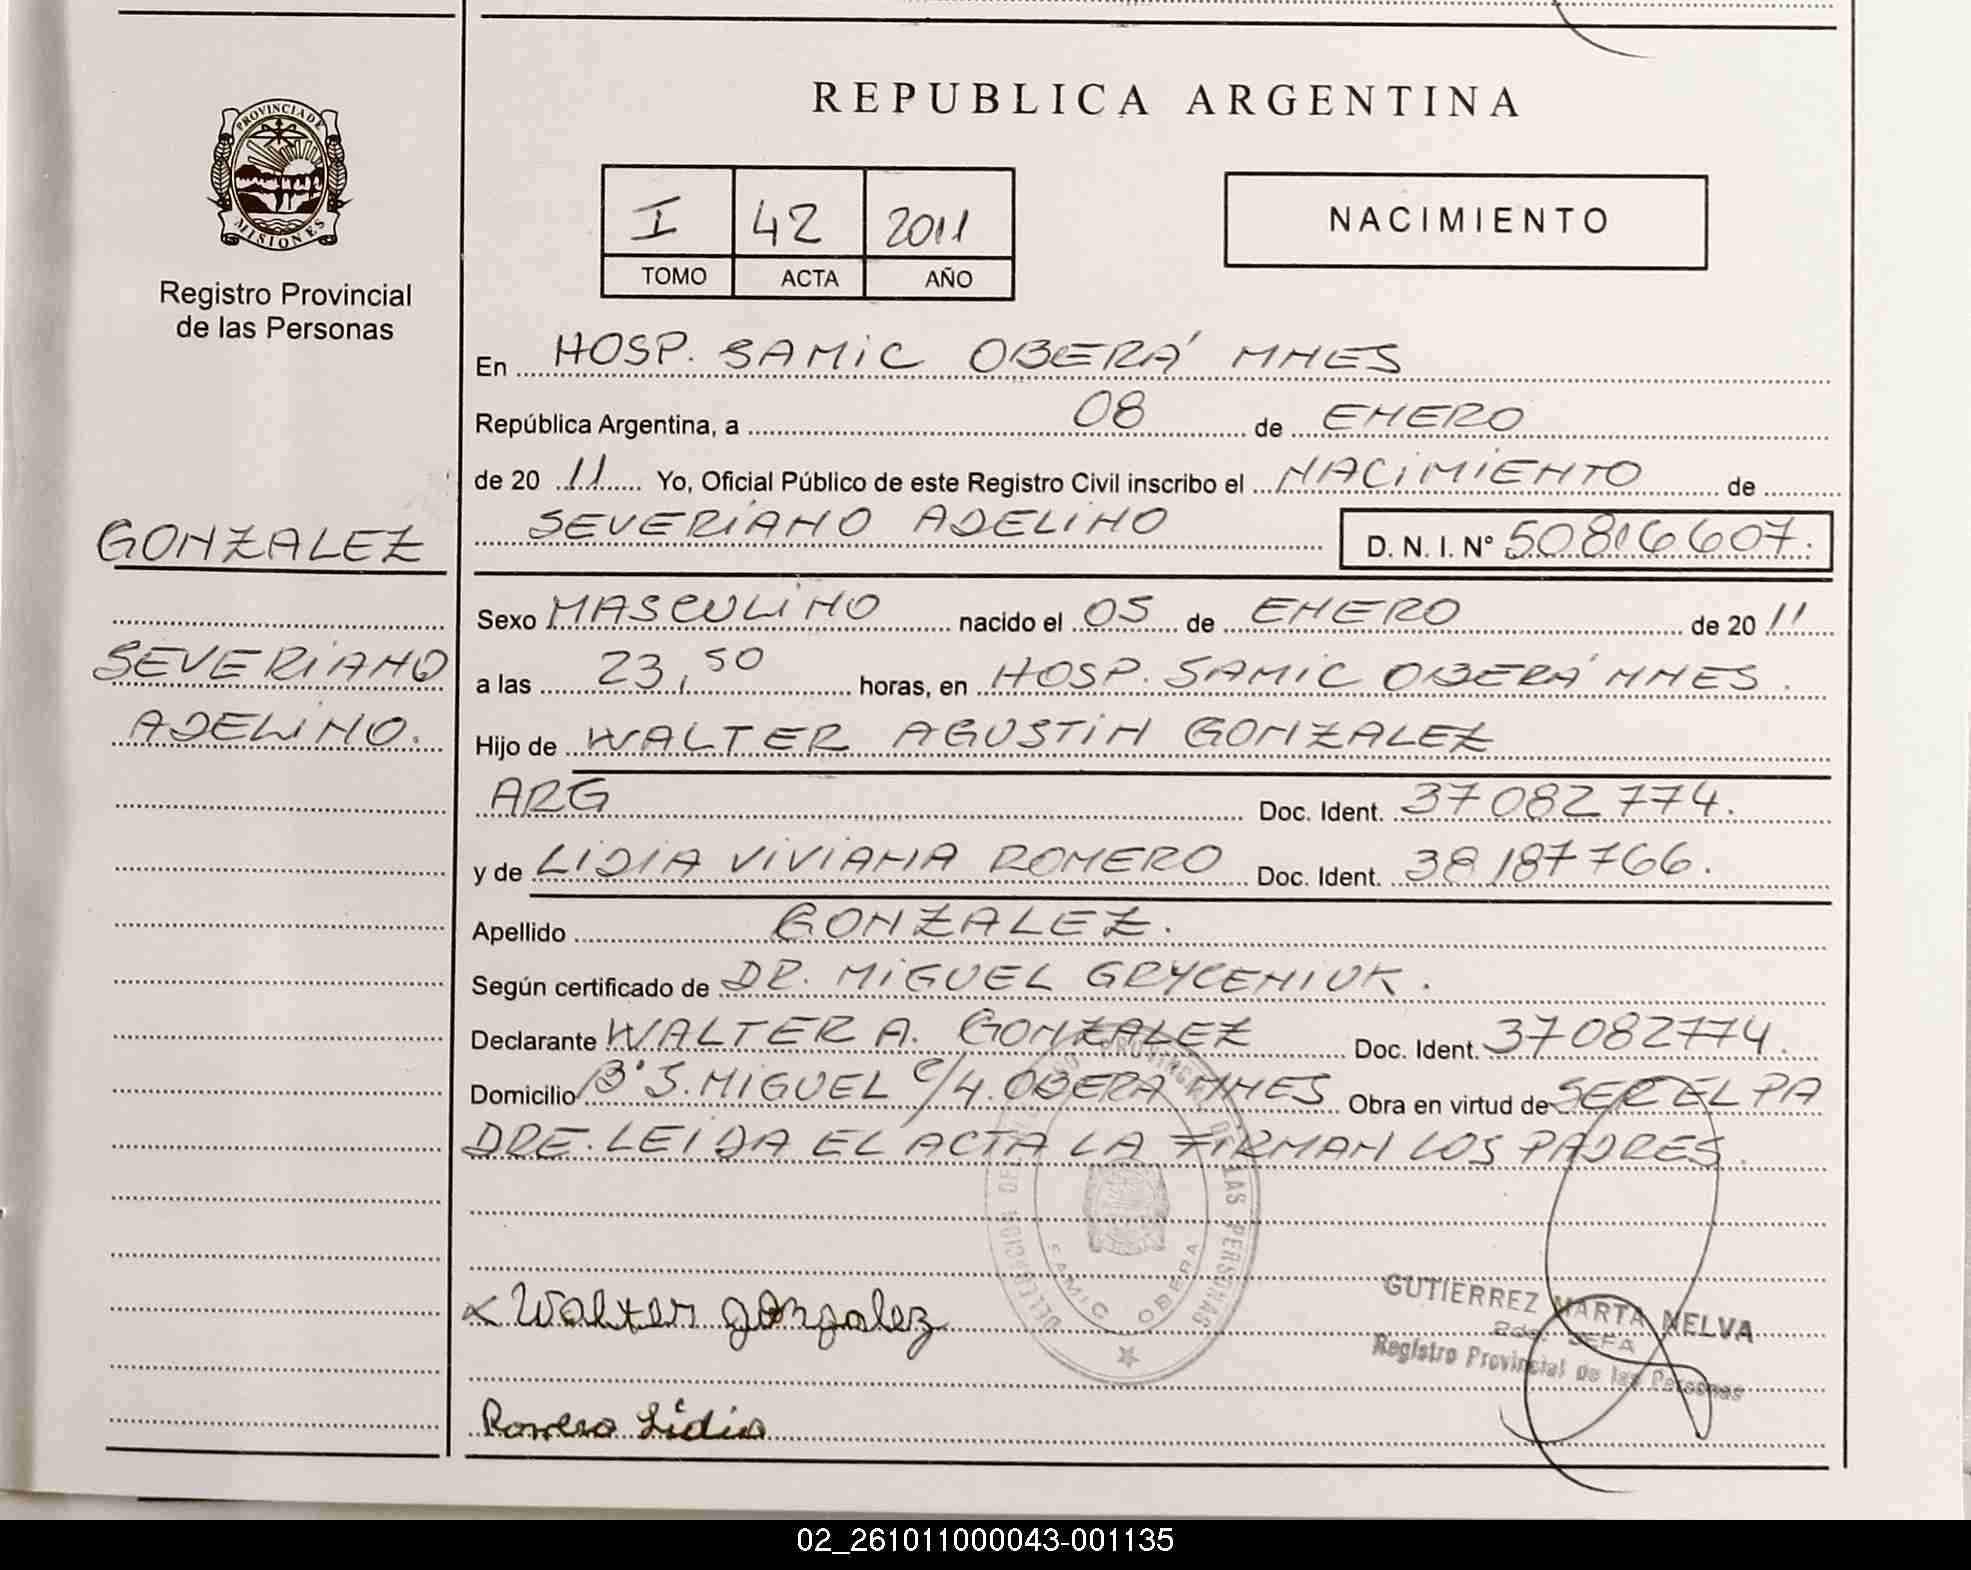 REPUBLICA ARGENTINA
PROVINCIA DE
MISIONES
Registro Provincial
de las Personas
I 42 2011
TOMO ACTA AÑO
NACIMIENTO
En HOSP. SAMIC OBERÁ MNES
República Argentina, a 08 de ENERO
de 20 11 Yo, Oficial Público de este Registro Civil inscribo el NACIMIENTO de
SEVERIANO ADELINO D. N. I. N° 50816607.
GONZALEZ
SEVERIANO
ADELINO.
Sexo MASCULINO nacido el 05 de ENERO de 20 11
a las 23,50 horas, en HOSP. SAMIC OBERÁ MNES.
Hijo de WALTER AGUSTIN GONZALEZ
ARG Doc. Ident. 37082774.
y de LIDIA VIVIANA ROMERO Doc. Ident. 38187766.
Apellido GONZALEZ.
Según certificado de DR. MIGUEL GRYCENIUK.
Declarante WALTER A. GONZALEZ Doc. Ident. 37082774.
Domicilio B° S. MIGUEL C/4. OBERA MNES Obra en virtud de SER EL PA
DRE. LEIDA EL ACTA LA FIRMAN LOS PADRES.
DELEGACION PROVINCIAL DE LAS PERSONAS
SAMIC OBERA
x Walter gonzalez
GUTIERREZ MARTA NELVA
2da. JEFA
Registro Provincial de las Personas
Romero Lidia
02_261011000043-001135